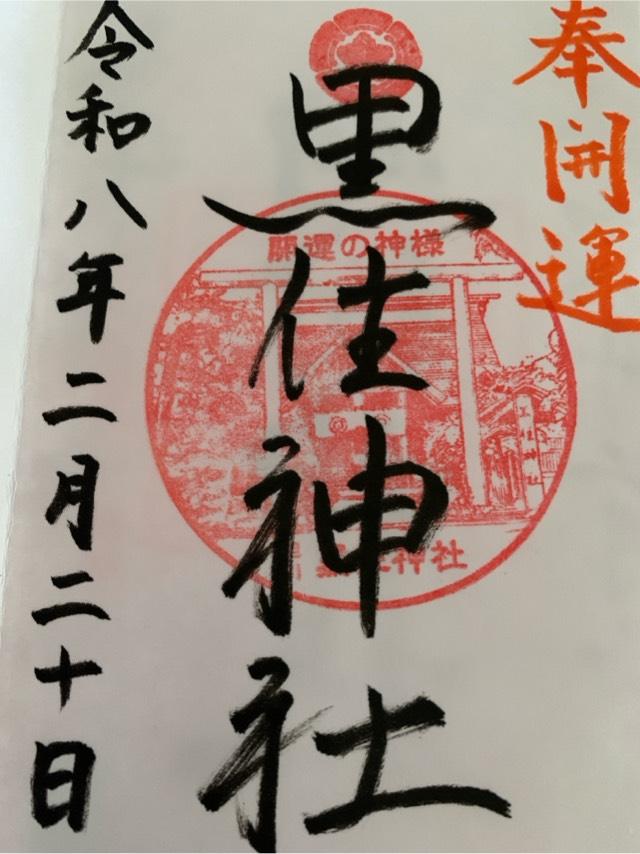 奉開運
黒住神社
開運の神様
神社
令和八年二月二十日